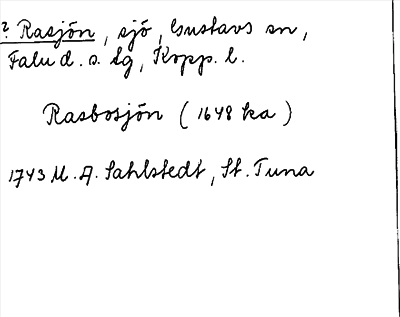 ? Rasjön, sjö, Gustavs sn,
Falu d. s. lg, Kopp. l.
Rasbosjön (1648 ka)
1743 M. A. Sahlstedt, St. Tuna